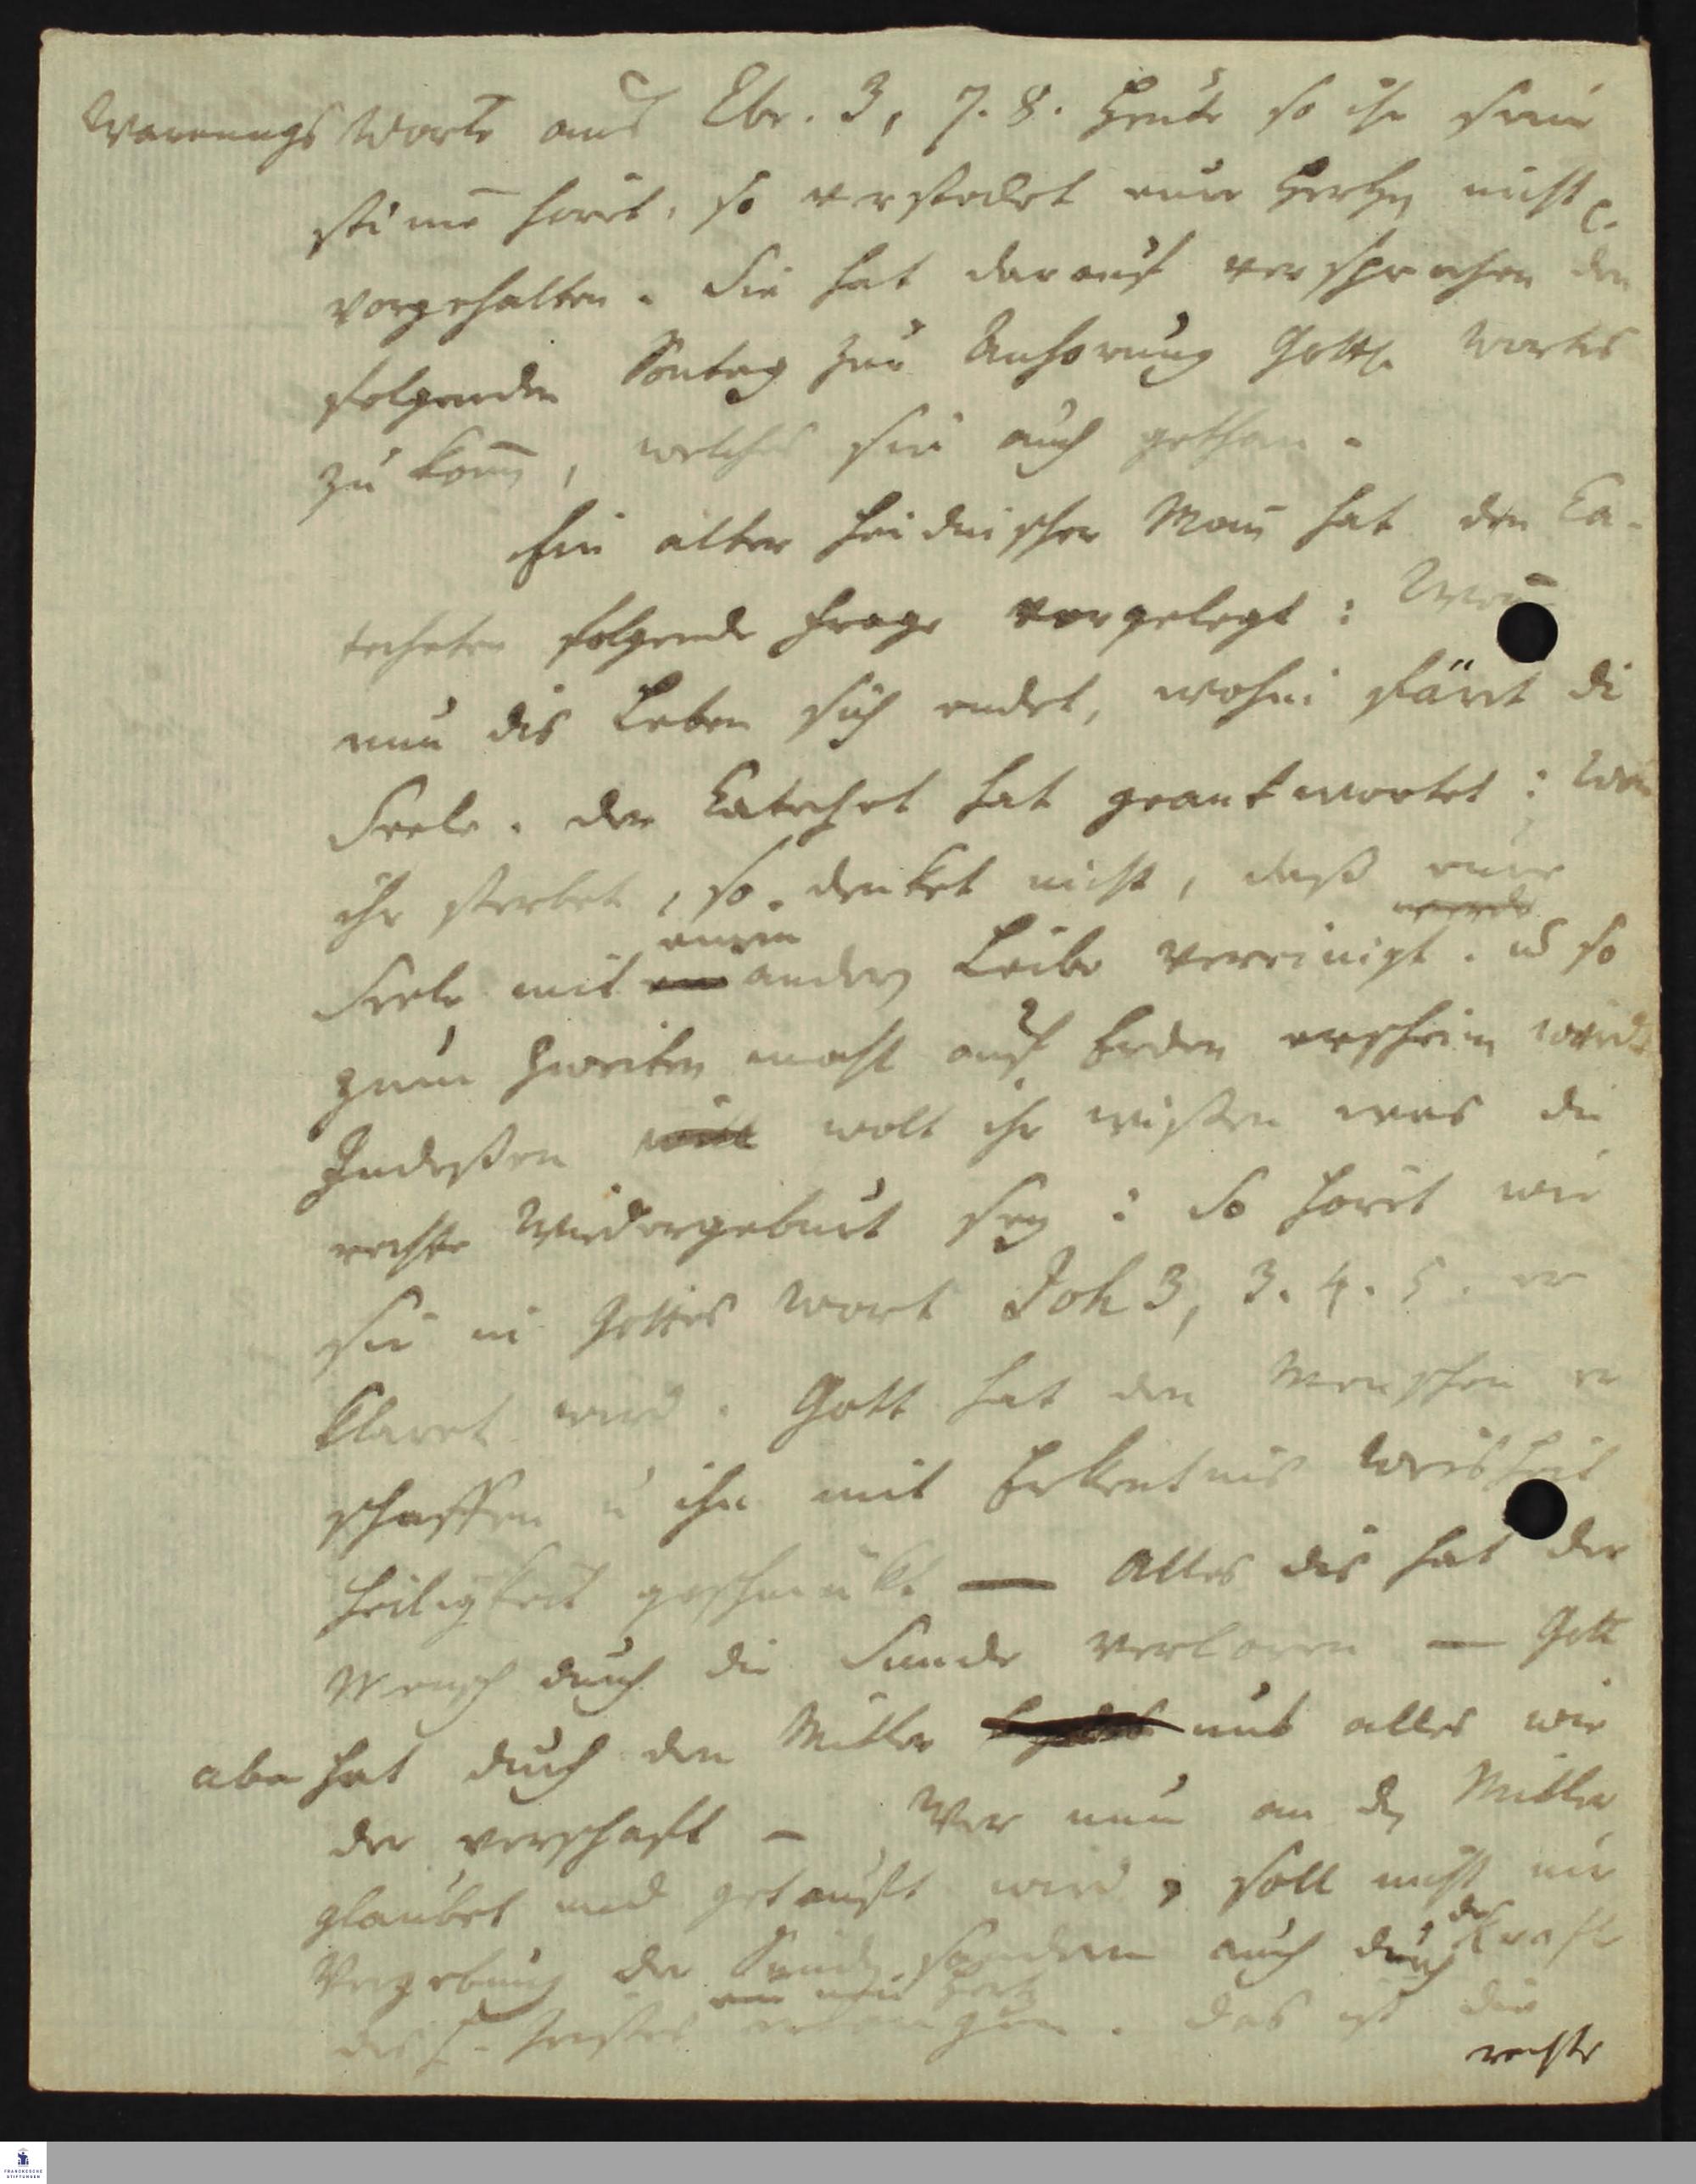 Warnungs Worte aus Ebr. 3, 7. 8. Heute so ihr seine
stime höret, so verstocket eure Hertzen nicht p.
vorgehalten. Sie hat darauf versprochen den
folgenden Sontag zur Anhörung Göttl. Wortes
zu kom̄en, welches sie auch gethan.
Ein alter heidnischer Man̄ hat den Ca-
techeten folgende Frage vorgelegt: Wen̄
nun dis Leben sich endet, wohin färet di
Seele. Der Catechet hat geantwortet: Wen
ihr sterbet, so dencket nicht, daß eure
Seele mit einem andern Leibe vereinigt werde u so
zum zweiten mahl auf Erden erscheinen werde
Indeßen wolt ihr wißen was die
rechte Widergeburt sey: So höret wie
sie in Gottes Wort Joh 3, 3. 4. 5. er
kläret wird. Gott hat den Menschen er
schaffen u ihn mit Erkentnis Weisheit
Heiligkeit geschmükt — Alles dis hat der
Mensch durch die Sünde verloren — Gott
aber hat durch den Mitler uns alles wie
der verschaft – Wer nun an den Mitler
glaubet und getauft wird, soll nicht nur
Vergebung der Sünden sondern auch durch die Kraft
des H. Geistes ein neu Hertz erlangen. Das ist die
rechte